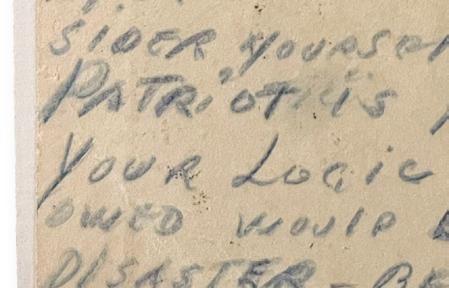 SIDER YOURSE
PATRIOT IS
YOUR LOGIC
OWED WOULD
DISASTER - BE